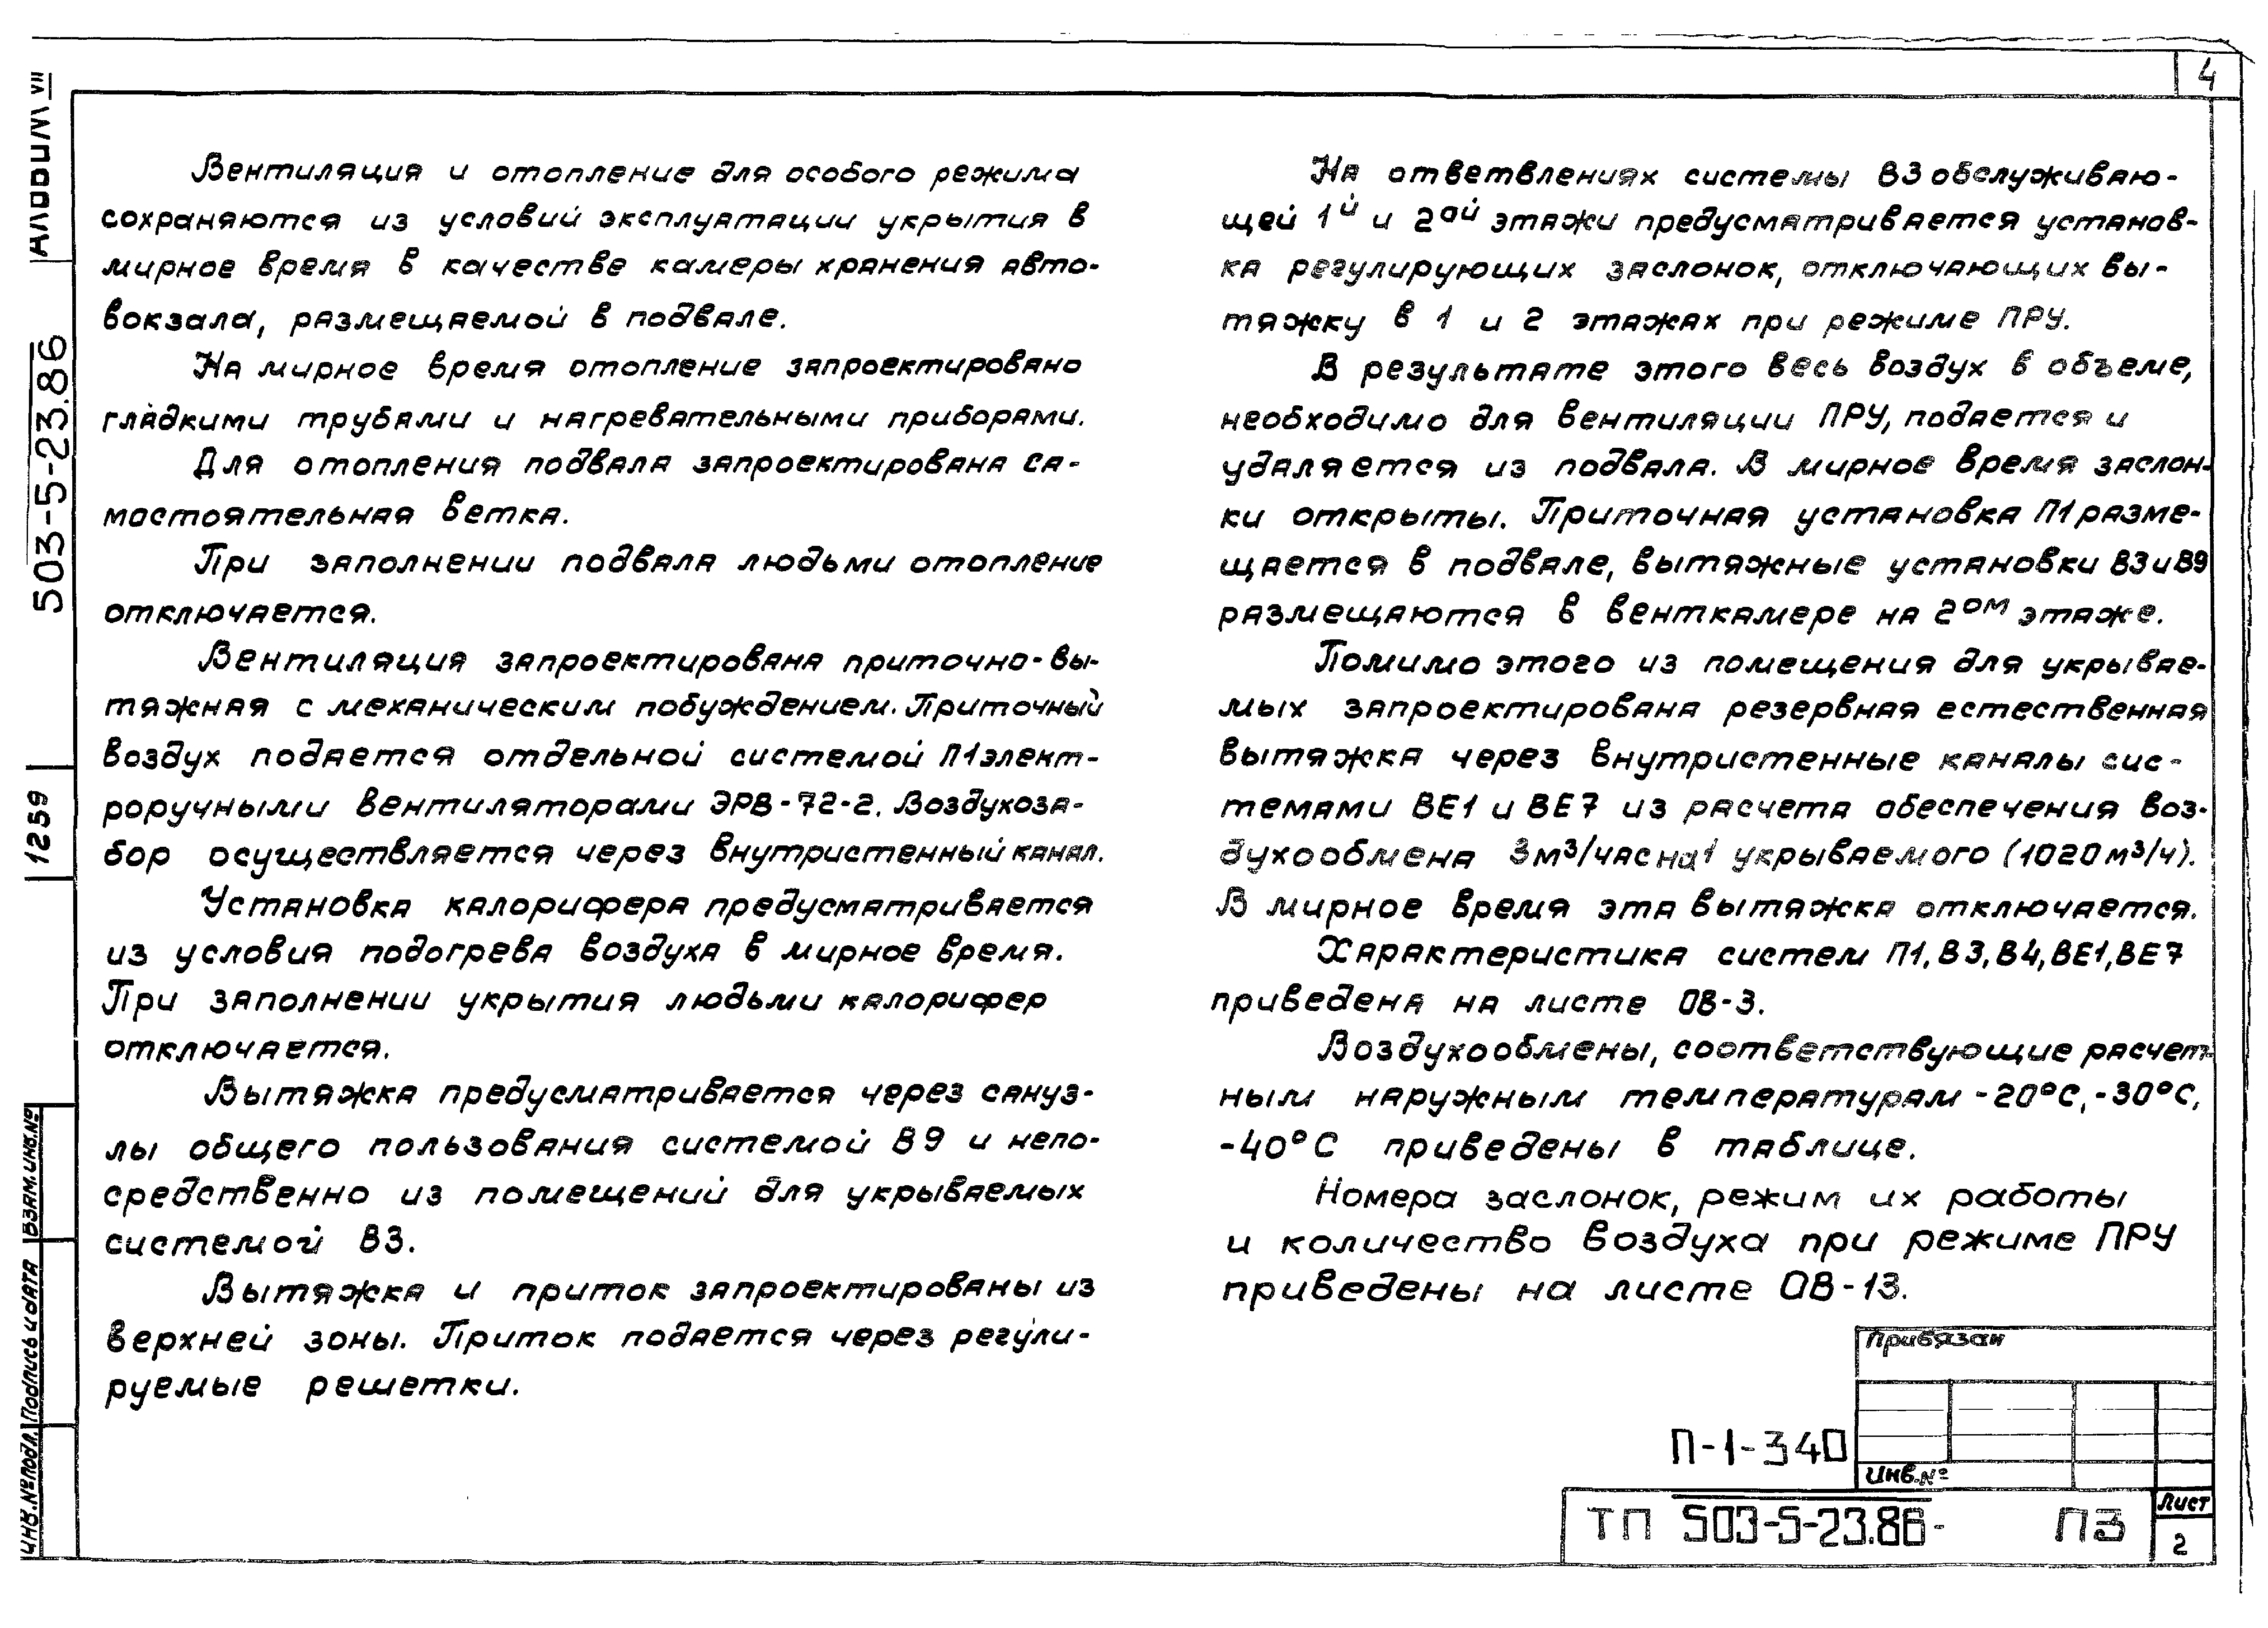 4
Альбом VII
503-5-23.86
1259
Взам. инв. №
Подпись и дата
Инв. № подл.
Вентиляция и отопление для особого режима
сохраняются из условий эксплуатации укрытия в
мирное время в качестве камеры хранения авто-
вокзала, размещаемой в подвале.
На мирное время отопление запроектировано
гладкими трубами и нагревательными приборами.
Для отопления подвала запроектирована са-
мостоятельная ветка.
При заполнении подвала людьми отопление
отключается.
Вентиляция запроектирована приточно-вы-
тяжная с механическим побуждением. Приточный
воздух подается отдельной системой П1 элект-
роручными вентиляторами ЭРВ-72-2. Воздухоза-
бор осуществляется через внутристенный канал.
Установка калорифера предусматривается
из условия подогрева воздуха в мирное время.
При заполнении укрытия людьми калорифер
отключается.
Вытяжка предусматривается через сануз-
лы общего пользования системой В9 и непо-
средственно из помещений для укрываемых
системой В3.
Вытяжка и приток запроектированы из
верхней зоны. Приток подается через регули-
руемые решетки.
На ответвлениях системы В3 обслуживаю-
щей 1й и 2ой этажи предусматривается установ-
ка регулирующих заслонок, отключающих вы-
тяжку в 1 и 2 этажах при режиме ПРУ.
В результате этого весь воздух в объеме,
необходимо для вентиляции ПРУ, подается и
удаляется из подвала. В мирное время заслон-
ки открыты. Приточная установка П1 разме-
щается в подвале, вытяжные установки В3 и В9
размещаются в венткамере на 2ом этаже.
Помимо этого из помещения для укрывае-
мых запроектирована резервная естественная
вытяжка через внутристенные каналы сис-
темами ВЕ1 и ВЕ7 из расчета обеспечения воз-
духообмена 3м³/час на 1 укрываемого (1020 м³/ч).
В мирное время эта вытяжка отключается.
Характеристика систем П1, В3, В4, ВЕ1, ВЕ7
приведена на листе ОВ-3.
Воздухообмены, соответствующие расчет-
ным наружным температурам -20°С, -30°С,
-40°С приведены в таблице.
Номера заслонок, режим их работы
и количество воздуха при режиме ПРУ
приведены на листе ОВ-13.
Привязан
П-1-340
Инв. №
ТП 503-5-23.86- ПЗ
Лист
2